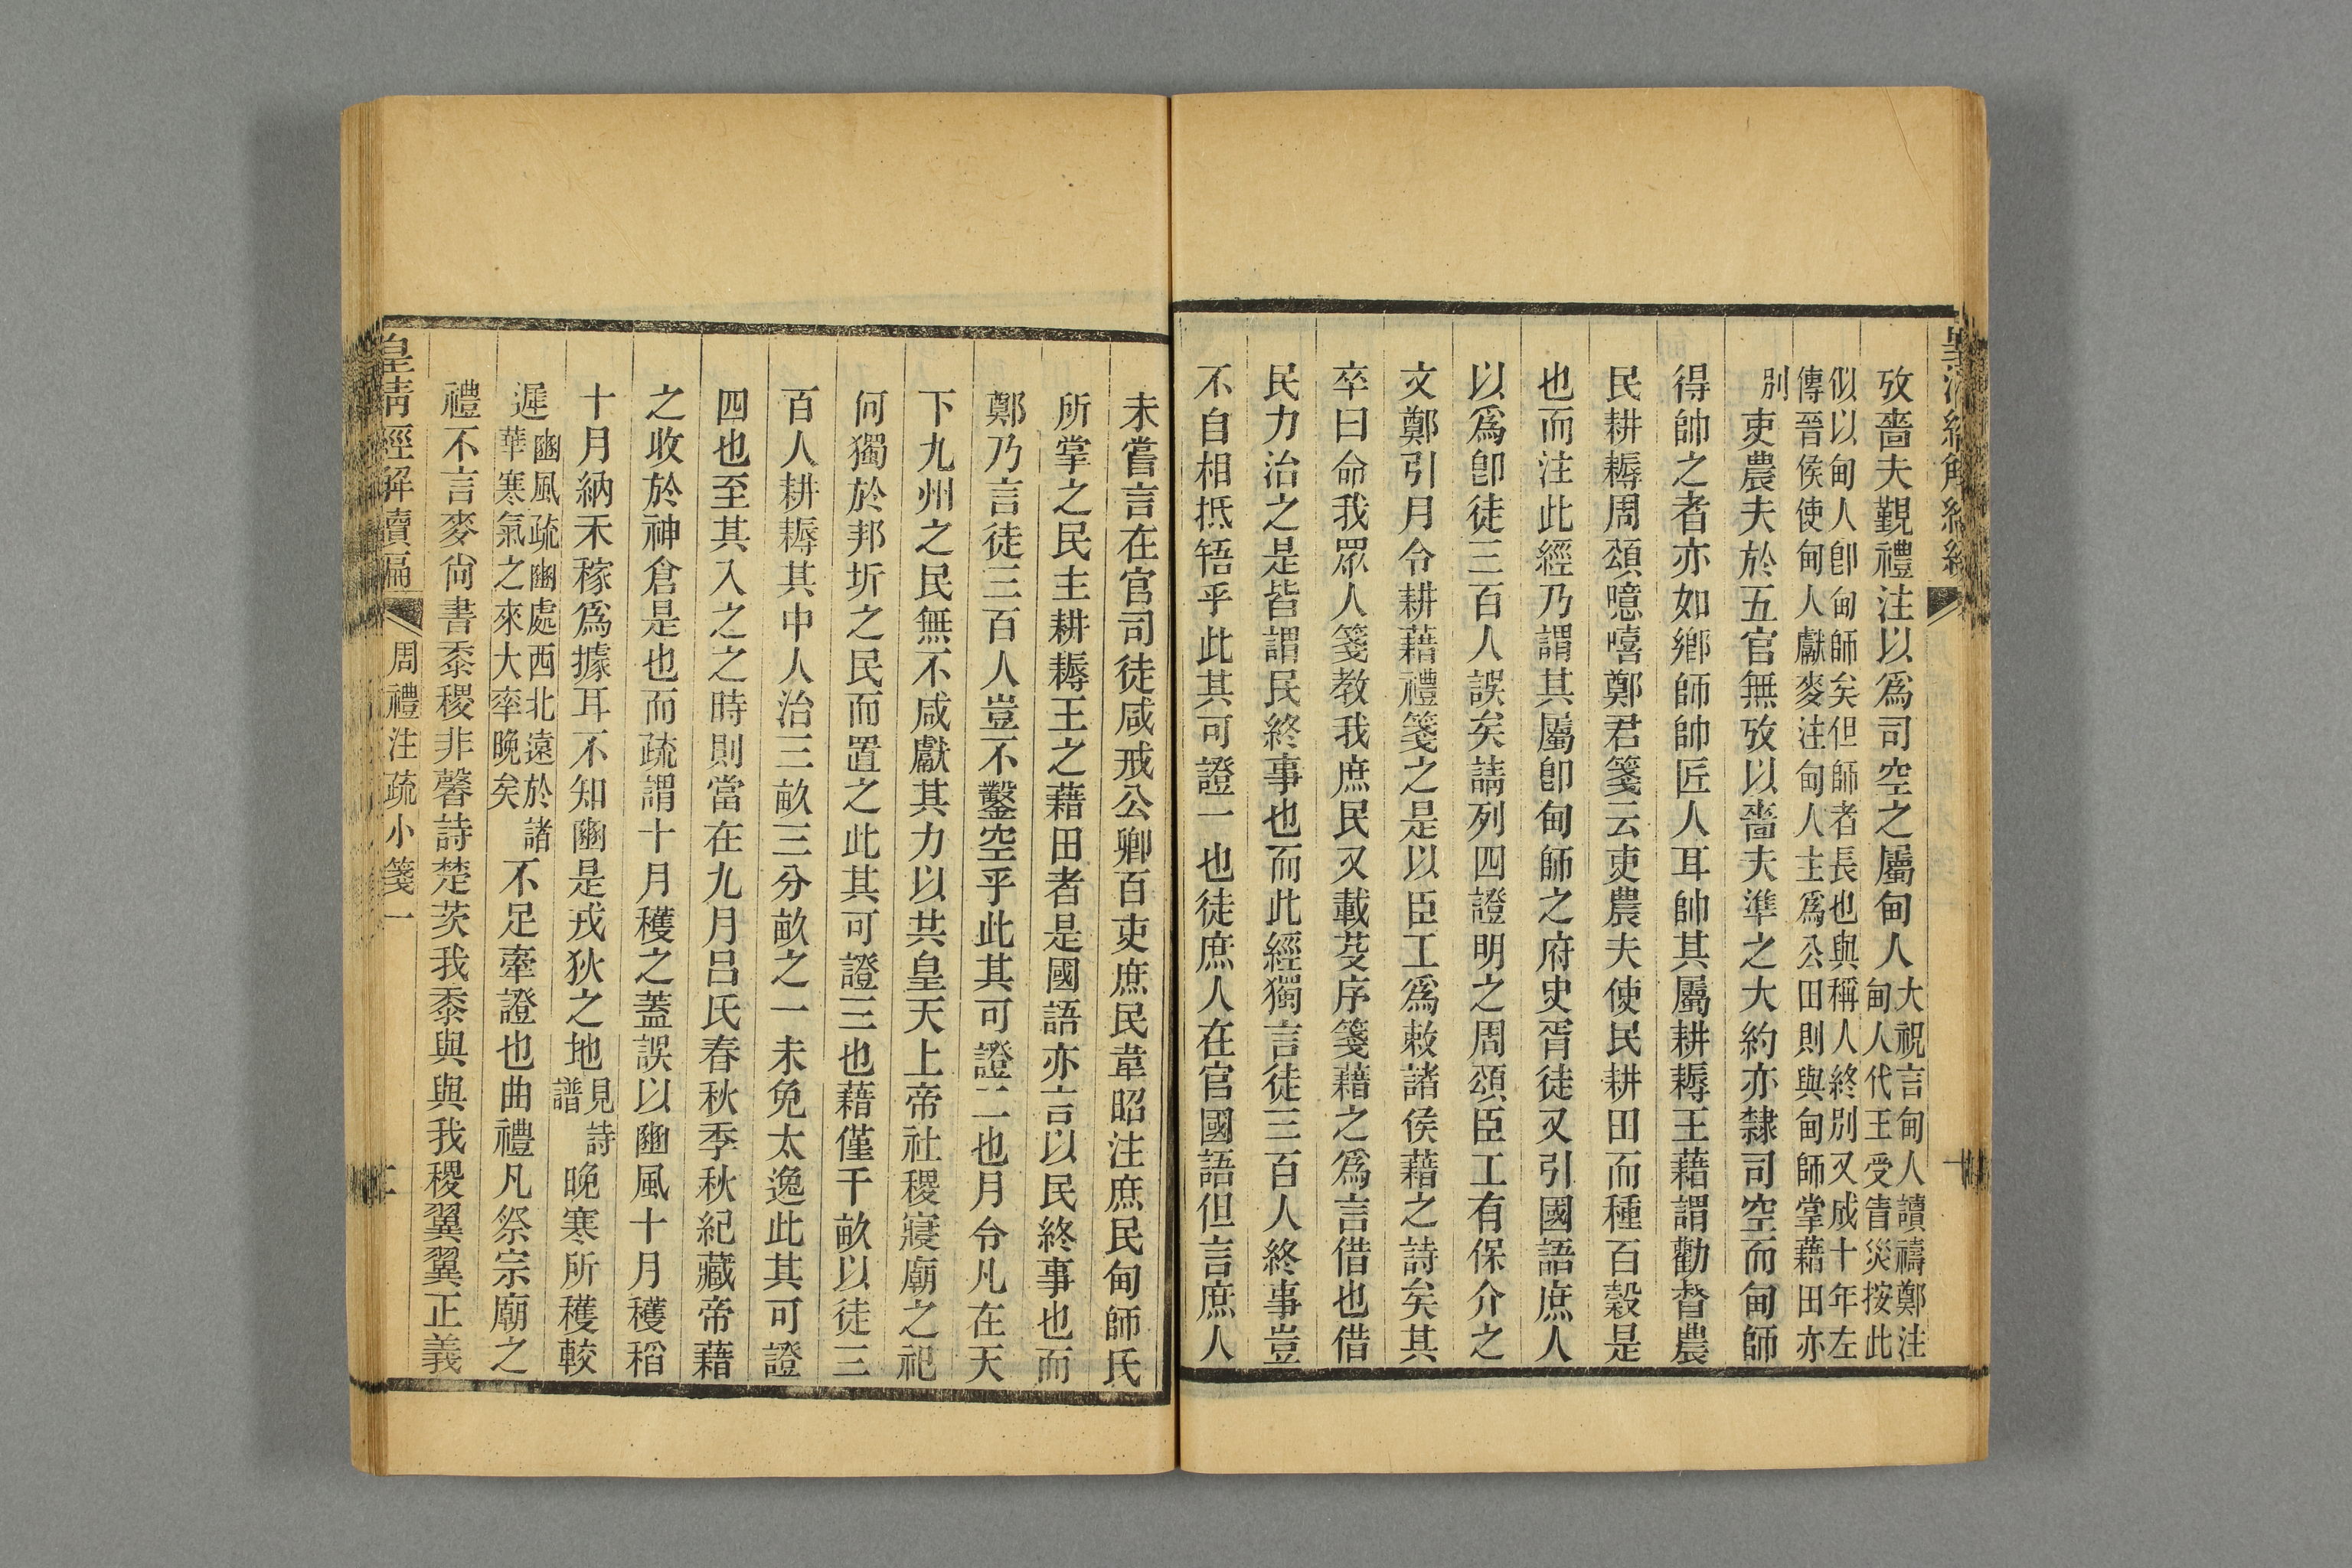 攷嗇夫覲禮注以爲司空之屬甸人大祝言甸人讀禱鄭注甸人代王受眚災按此
似以甸人卽甸師矣但師者長也與稱人終別又成十年左傳晉侯使甸人獻麥注甸人主爲公田則與甸師掌藉田亦
別吏農夫於五官無攷以嗇夫準之大約亦隸司空而甸師
得帥之者亦如鄉師帥匠人耳帥其屬耕耨王藉謂勸督農
民耕耨周頌噫嘻鄭君箋云吏農夫使民耕田而種百穀是
也而注此經乃謂其屬卽甸師之府史胥徒又引國語庶人
以爲卽徒三百人誤矣請列四證明之周頌臣工有保介之
文鄭引月令耕藉禮箋之是以臣工爲敕諸侯藉之詩矣其
卒曰命我眾人箋教我庶民又載芟序箋藉之爲言借也借
民力治之是皆謂民終事也而此經獨言徒三百人終事豈
不自相抵牾乎此其可證一也徒庶人在官國語但言庶人
未嘗言在官司徒咸戒公卿百吏庶民韋昭注庶民甸師氏
所掌之民主耕耨王之藉田者是國語亦言以民終事也而
鄭乃言徒三百人豈不鑿空乎此其可證二也月令凡在天
下九州之民無不咸獻其力以共皇天上帝社稷寢廟之祀
何獨於邦圻之民而置之此其可證三也藉僅千畝以徒三
百人耕耨其中人治三畝三分畝之一未免太逸此其可證
四也至其入之之時則當在九月呂氏春秋季秋紀藏帝藉
之收於神倉是也而疏謂十月穫之蓋誤以豳風十月穫稻
十月納禾稼爲據耳不知豳是戎狄之地見詩譜晚寒所穫較
遲豳風疏豳處西北遠於諸華寒氣之來大率晚矣不足牽證也曲禮凡祭宗廟之
禮不言麥尙書黍稷非馨詩楚茨我黍與與我稷翼翼正義
皇清經解續編
周禮注疏小箋一